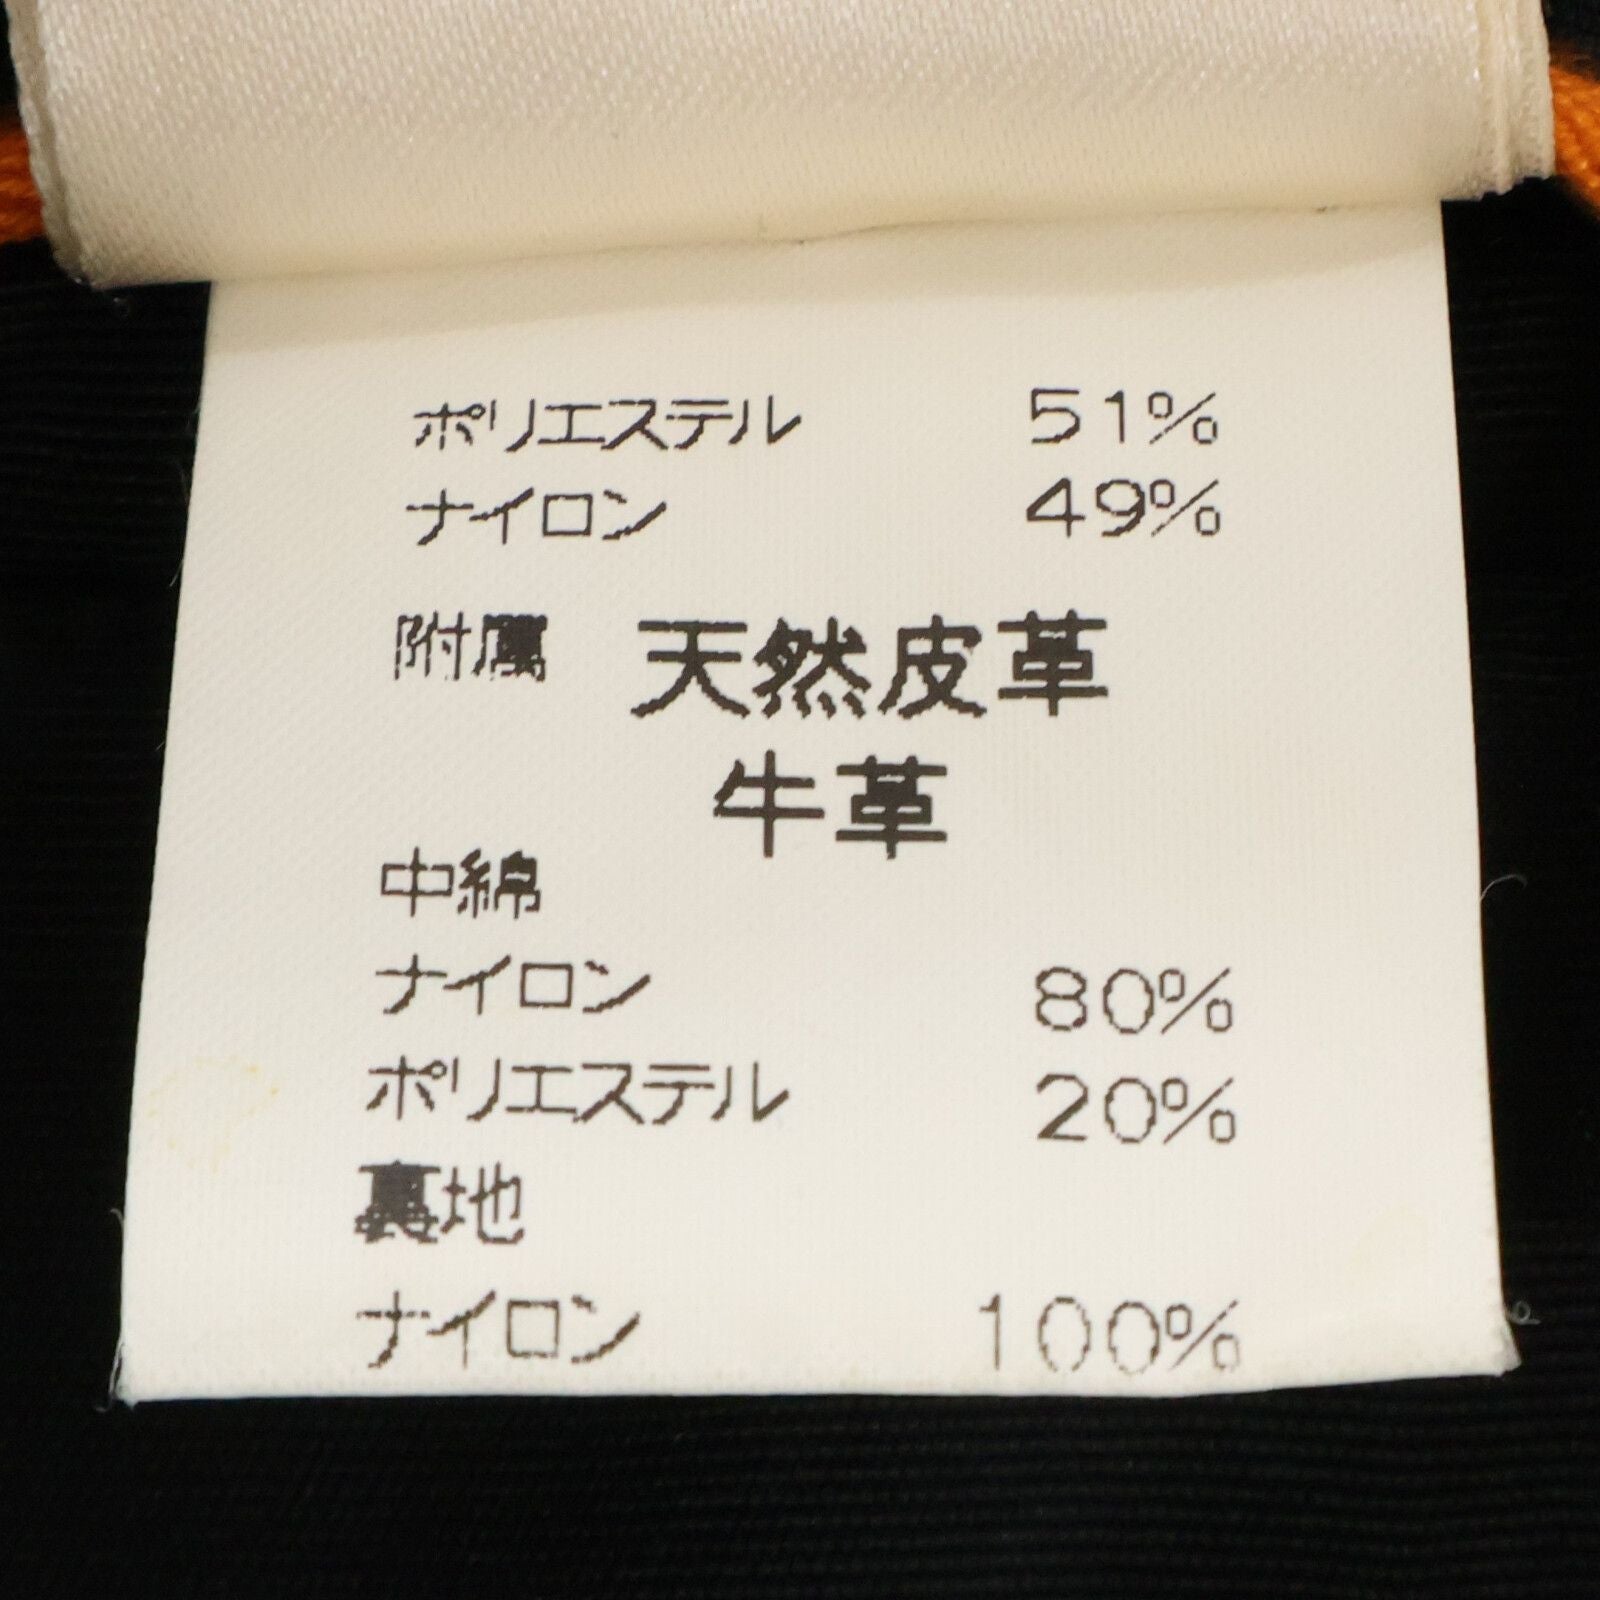 ポリエステル 51%
ナイロン 49%
附属 天然皮革
牛革
中綿
ナイロン 80%
ポリエステル 20%
裏地
ナイロン 100%